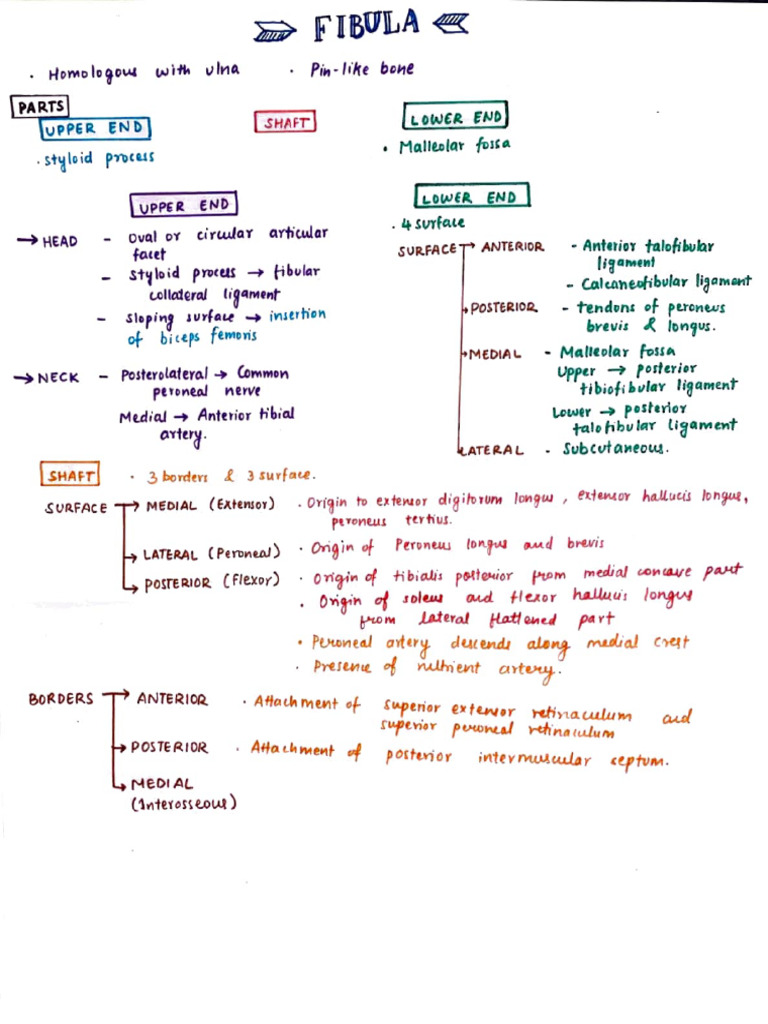 FIBULA
. Homologous with ulna . Pin-like bone
PARTS
UPPER END SHAFT LOWER END
. styloid process . Malleolar fossa
UPPER END
→ HEAD - Oval or circular articular
facet
- Styloid process → fibular
collateral ligament
- Sloping surface → insertion
of biceps femoris
→ NECK - Posterolateral → Common
peroneal nerve
Medial → Anterior tibial
artery.
LOWER END
. 4 surface
SURFACE → ANTERIOR - Anterior talofibular
ligament
- Calcaneofibular ligament
→ POSTERIOR - tendons of peroneus
brevis & longus.
→ MEDIAL - Malleolar fossa
Upper → posterior
tibiofibular ligament
Lower → posterior
talofibular ligament
LATERAL - Subcutaneous.
SHAFT . 3 borders & 3 surface.
SURFACE → MEDIAL (Extensor) . Origin to extensor digitorum longus, extensor hallucis longus,
peroneus tertius.
→ LATERAL (Peroneal) . Origin of Peroneus longus and brevis
→ POSTERIOR (Flexor) . Origin of tibialis posterior from medial concave part
. Origin of soleus and flexor hallucis longus
from lateral flattened part
. Peroneal artery descends along medial crest
. Presence of nutrient artery.
BORDERS → ANTERIOR . Attachment of superior extensor retinaculum and
superior peroneal retinaculum
→ POSTERIOR . Attachment of posterior intermuscular septum.
→ MEDIAL
(Interosseous)